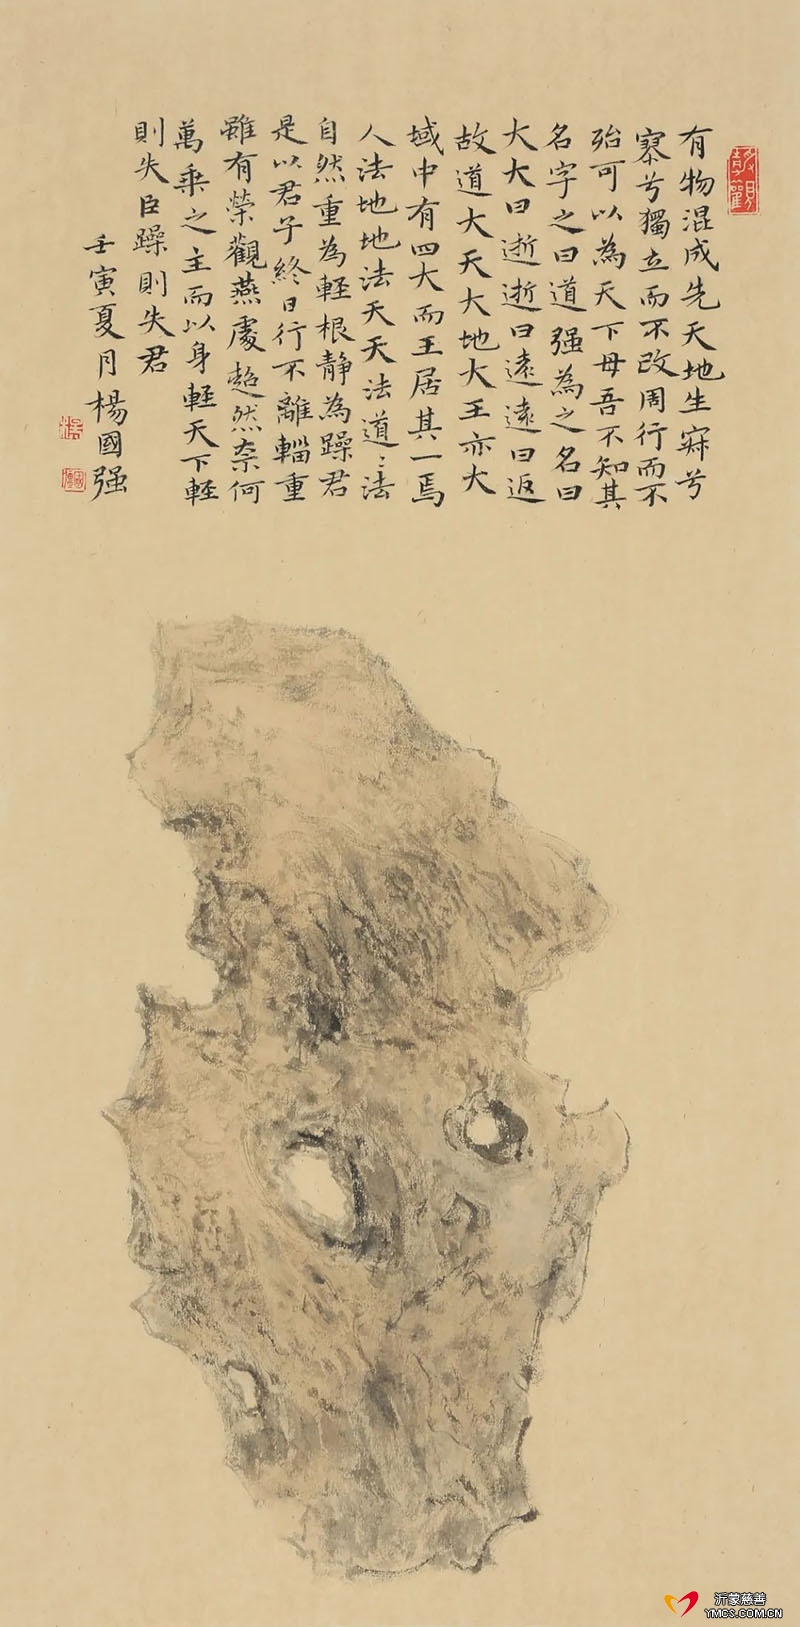 有物混成先天地生寂兮
寥兮獨立而不改周行而不
殆可以為天下母吾不知其
名字之曰道强為之名曰
大大曰逝逝曰遠遠曰返
故道大天大地大王亦大
域中有四大而王居其一焉
人法地地法天天法道〻法
自然重為輕根静為躁君
是以君子終日行不離輜重
雖有榮觀燕處超然奈何
萬乘之主而以身輕天下輕
則失臣躁則失君
壬寅夏月楊國强
沂蒙慈善
YMCS.COM.CN